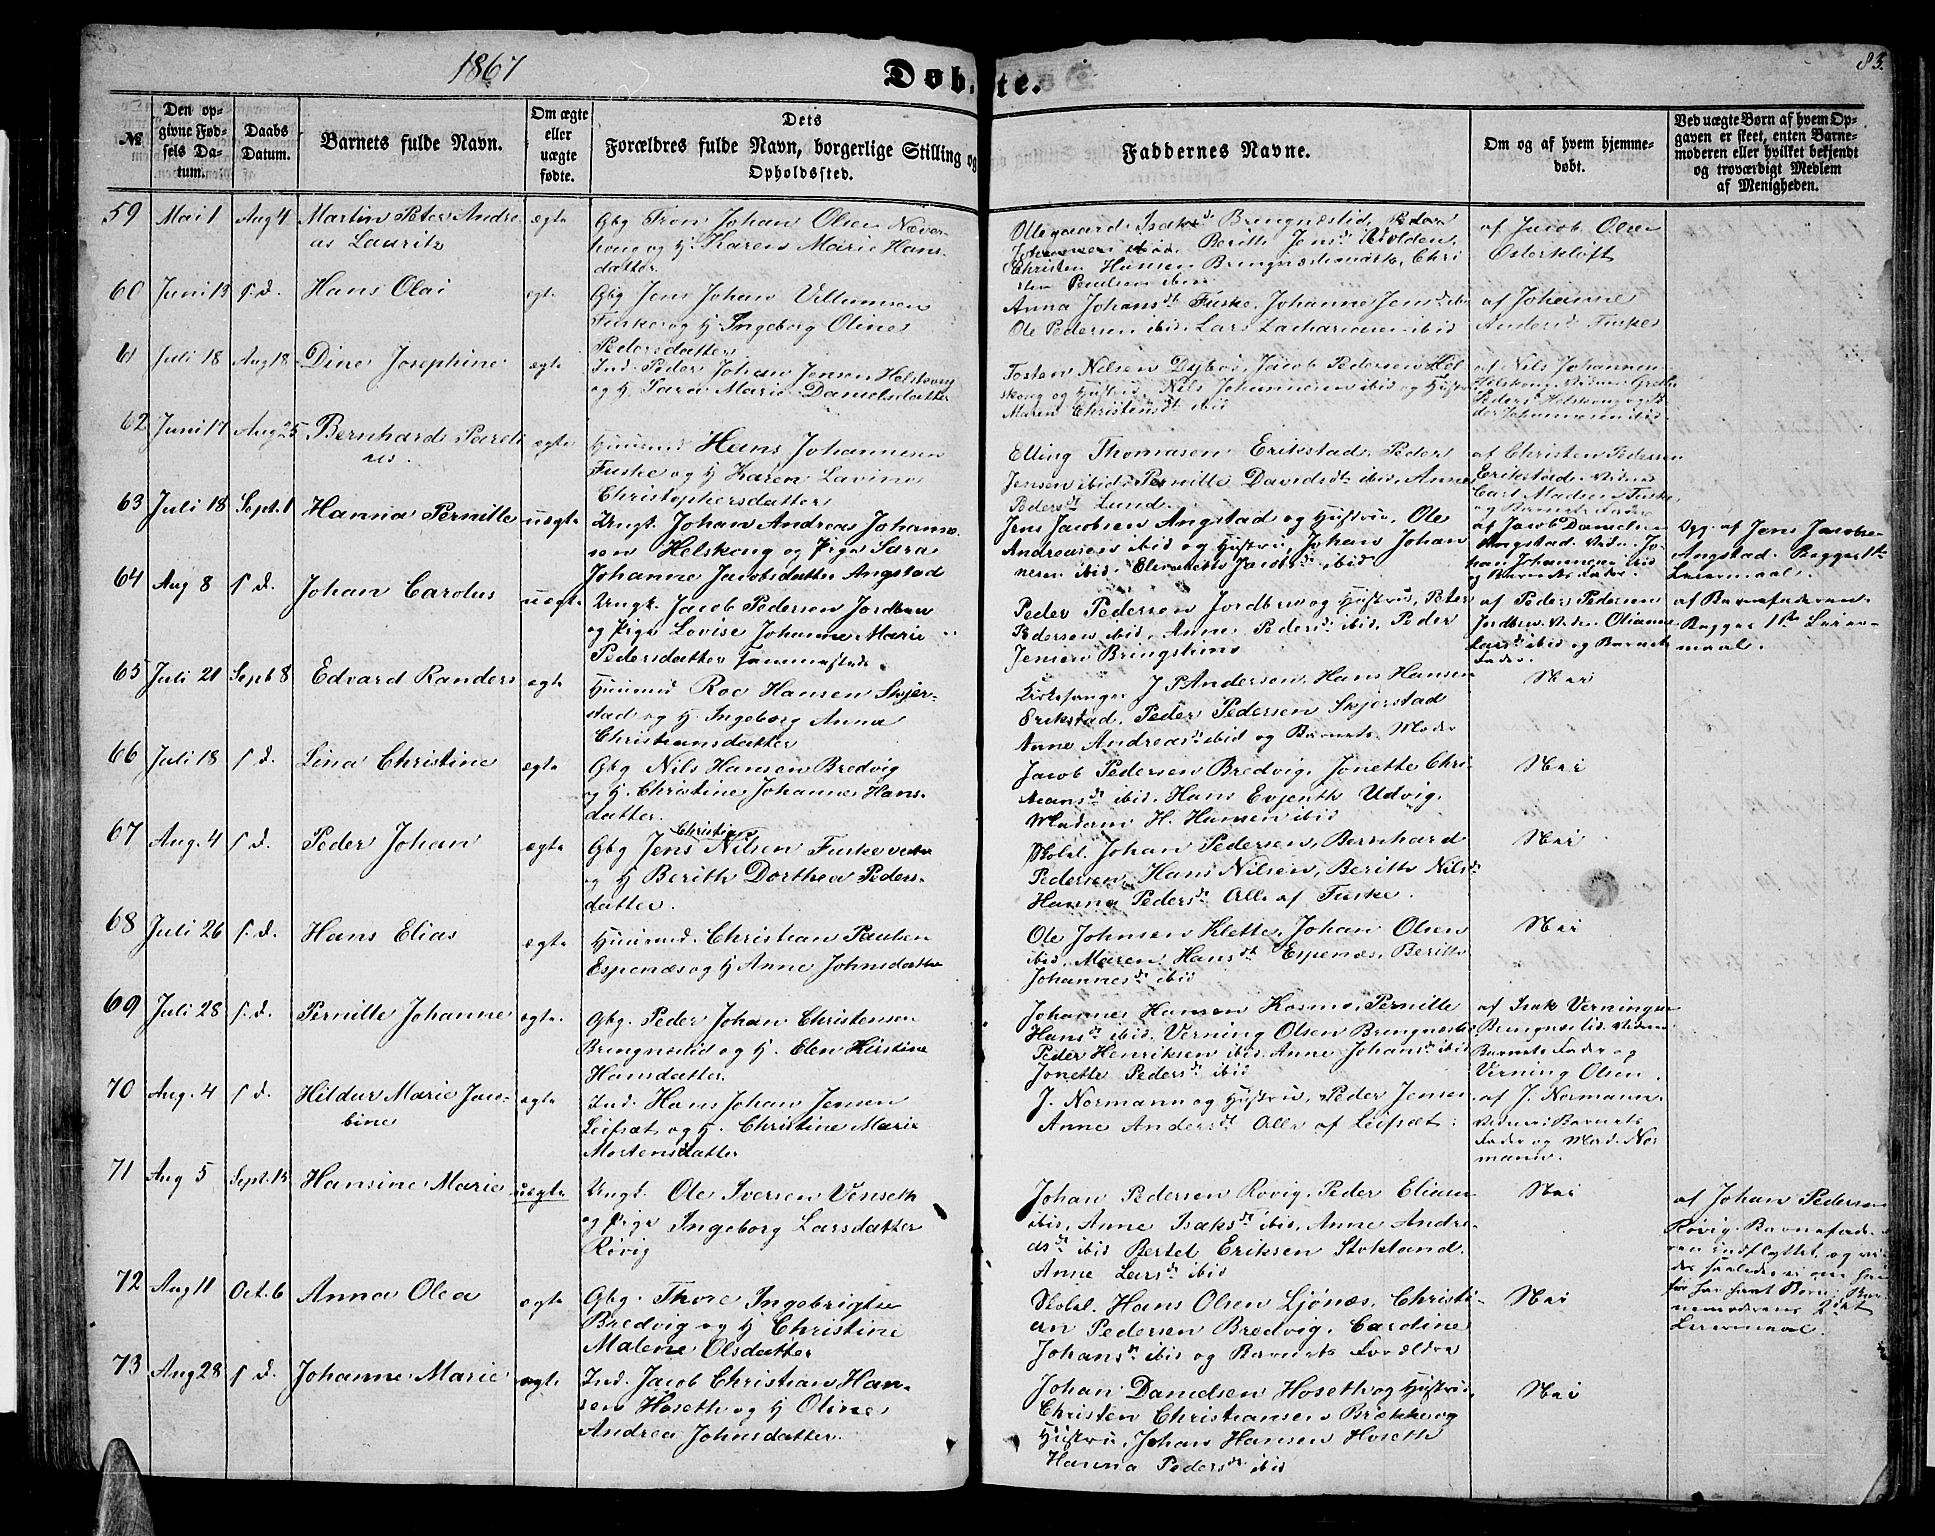 1867
Døbte.
83.
№
Den opgivne Fødsels Datum.
Daabs Datum.
Barnets fulde Navn.
Om ægte eller uægte fødte.
Dets Forældres fulde Navn, borgerlige Stilling og Opholdssted.
Faddernes Navne.
Om og af hvem hjemmedøbt.
Ved uægte Børn af hvem Opgaven er skeet, enten Barnemoderen eller hvilket bekjendt og troværdigt Medlem af Menigheden.
59 Mai 1 Aug 4 Martin Peter Andreas Lauritz ægte
Gbg Tron Johan Olsen Næverhoug og H. Karen Marie Hansdatter.
Ollegaard Isaksd Bringnæslid, Peder
Johannesen ibid, Berith Jensd Volden,
Christen Hansen Bringnæsmark, Christen Paulsen ibid
af Jacob Olsen
Osterkløft
60 Juni 13 s. d. Hans Olai ægte
Gbg Jens Johan Villumsen
Fuske og H Ingeborg Oline
Pedersdatter
Anna Johansdt Fuske, Johanne Jensdt ibid
Ole Pedersen ibid, Lars Zachariasen ibid
af Johanne
Andersd Fuske
61 Juli 18 Aug 18 Dine Josephine ægte
Ind. Peder Johan Jensen Helskong
og H Sara Marie Danielsdatter
Tosten Nilsen Dybvi, Jacob Pedersen Helskong og Hustru, Nils Johannesen ibid og Hustru
Maren Christensdt ibid
af Nils Johannesen
Helskong. Vidne Grethe
Pedersd Helskong og Peder Johannesen ibid
62 Juni 17 Aug 25 Bernhard Parelius. ægte
Huusmd Hans Johannesen
Fuske og H Karen Lavina
Christophersdatter
Elling Thomasen Erikstad, Peder
Jensen ibid, Pernille Davidsdt ibid, Anne
Pedersdt Lund.
af Christen Pedersen
Erikstad. Vidne
Carl Madsen Fuske
og Barnets Fader
63 Juli 18 Sept. 1 Hanna Pernille uægte
Ungk. Johan Andreas Johannesen Helskong og Pige Sara
Johanne Jacobsdatter Angstad
Jens Jacobsen Angstad og Hustru, Ole
Andreasen ibid og Hustru, Johan Johannesen ibid, Elen Jacobsdt ibid
af Jacob Danielsen
Angstad. Vidne Johan Johannesen ibid
og Barnets Fader.
Opg. af Jens Jacobsen
Angstad. Begges 1ste
Leiermaal.
64 Aug 8 s d. Johan Carolus uægte
Ungk. Jacob Pedersen Jordbru
og Pige Lovise Johanne Marie
Pedersdatter
Peder Pedersen Jordbru og Hustru, Peter
Pedersen ibid, Anne Pedersdt ibid, Peder
Jensen Bringslims
af Peder Pedersen
Jordbru. Vidne Olianna
Larsdt ibid og Barnets
Fader.
af Barnefaderen
Begges 1ste Leiermaal.
65 Juli 21 Sept 8 Edvard Randers ægte
Huusmd Roe Hansen Skjerstad og H Ingeborg Anna
Christiansdatter
Kirkesanger J P Andersen, Hans Hansen
Erikstad, Peder Pedersen Skjerstad
Anne Andreasdt ibid og Barnets Moder
Nei
66 Juli 18 s. d. Lina Christine ægte
Gbg Nils Hansen Bredvig
og H. Christine Johanne Hansdatter.
Jacob Pedersen Bredvig, Jonette Christiansdt ibid, Hans Evjenth Udvig,
Madam H. Hansen ibid
Nei
67 Aug. 4 s. d. Peder Johan ægte
Gbg Jens Christian Nilsen Fuske
og H Berith Dorthea Pedersdatter.
Skolel. Johan Pedersen, Bernhard
Pedersen, Hans Nilsen, Berith Nilsd
Hanna Pedersdt Alle af Fuske.
Nei
68 Juli 26 s. d. Hans Elias ægte
Huusmd. Christian Paulsen
Espenæs og H Anne Johnsdatter
Ole Johnsen Klette, Johan Olsen
ibid, Maren Hansdt Espenæs, Berith
Johannesdt ibid
Nei
69 Juli 28 s. d. Pernille Johanne ægte.
Gbg. Peder Johan Christensen
Bringneslid og H. Elen Kirstine
Hansdatter.
Johannes Hansen Kosmo, Pernille
Hansdt ibid, Verning Olsen Bringnæslid
Peder Henriksen ibid, Anne Johansdt ibid
Jonette Pedersdt ibid
af Isak Verningsen
Bringnæslid. Vidne
Barnets Fader og
Verning Olsen.
70 Aug. 4 s d. Hildur Marie Jacobine ægte
Ind. Hans Johan Jensen
Leifsæt og H. Christine Marie
Mortensdatter
J. Normann og Hustru, Peder Jensen
Anne Andersdt Alle af Leifsæt.
af J. Normann.
Vidne Barnets
Fader og Mad. Normann.
71 Aug 5 Sept. 15 Hansine Marie uægte
Ungk. Ole Iversen Venseth
og Pige Ingeborg Larsdatter
Røvig
Johan Pedersen Rovig, Peder Eliasen
ibid, Anne Isaksdt ibid, Anne Andreasdt ibid Bertel Eriksen Stokland,
Anne Larsdt ibid
Nei
af Johan Pedersen
Røvig. Barnefaderen indflyttet og vides saaledes ei om han
før har havt Børn, Barnemoderens 2det
Leiermaal.
72 Aug 11 Oct. 6 Anna Olea ægte
Gbg. Thore Ingebrigtsen
Bredvig og H Christine
Malene Olsdatter
Skolel. Hans Olsen Ljønæs, Christian Pedersen Bredvig, Cardine
Johansdt ibid og Barnets Forældre
Nei
73 Aug 28 s d. Johanne Marie ægte
Ind. Jacob Christian Hansen Hoseth og H Oline
Andrea Johnsdatter.
Johan Danielsen Hoseth og Hustru,
Christen Christiansen Brække og
Hustru, Johan Hansen Hoseth
Hanna Pedersdt ibid
Nei